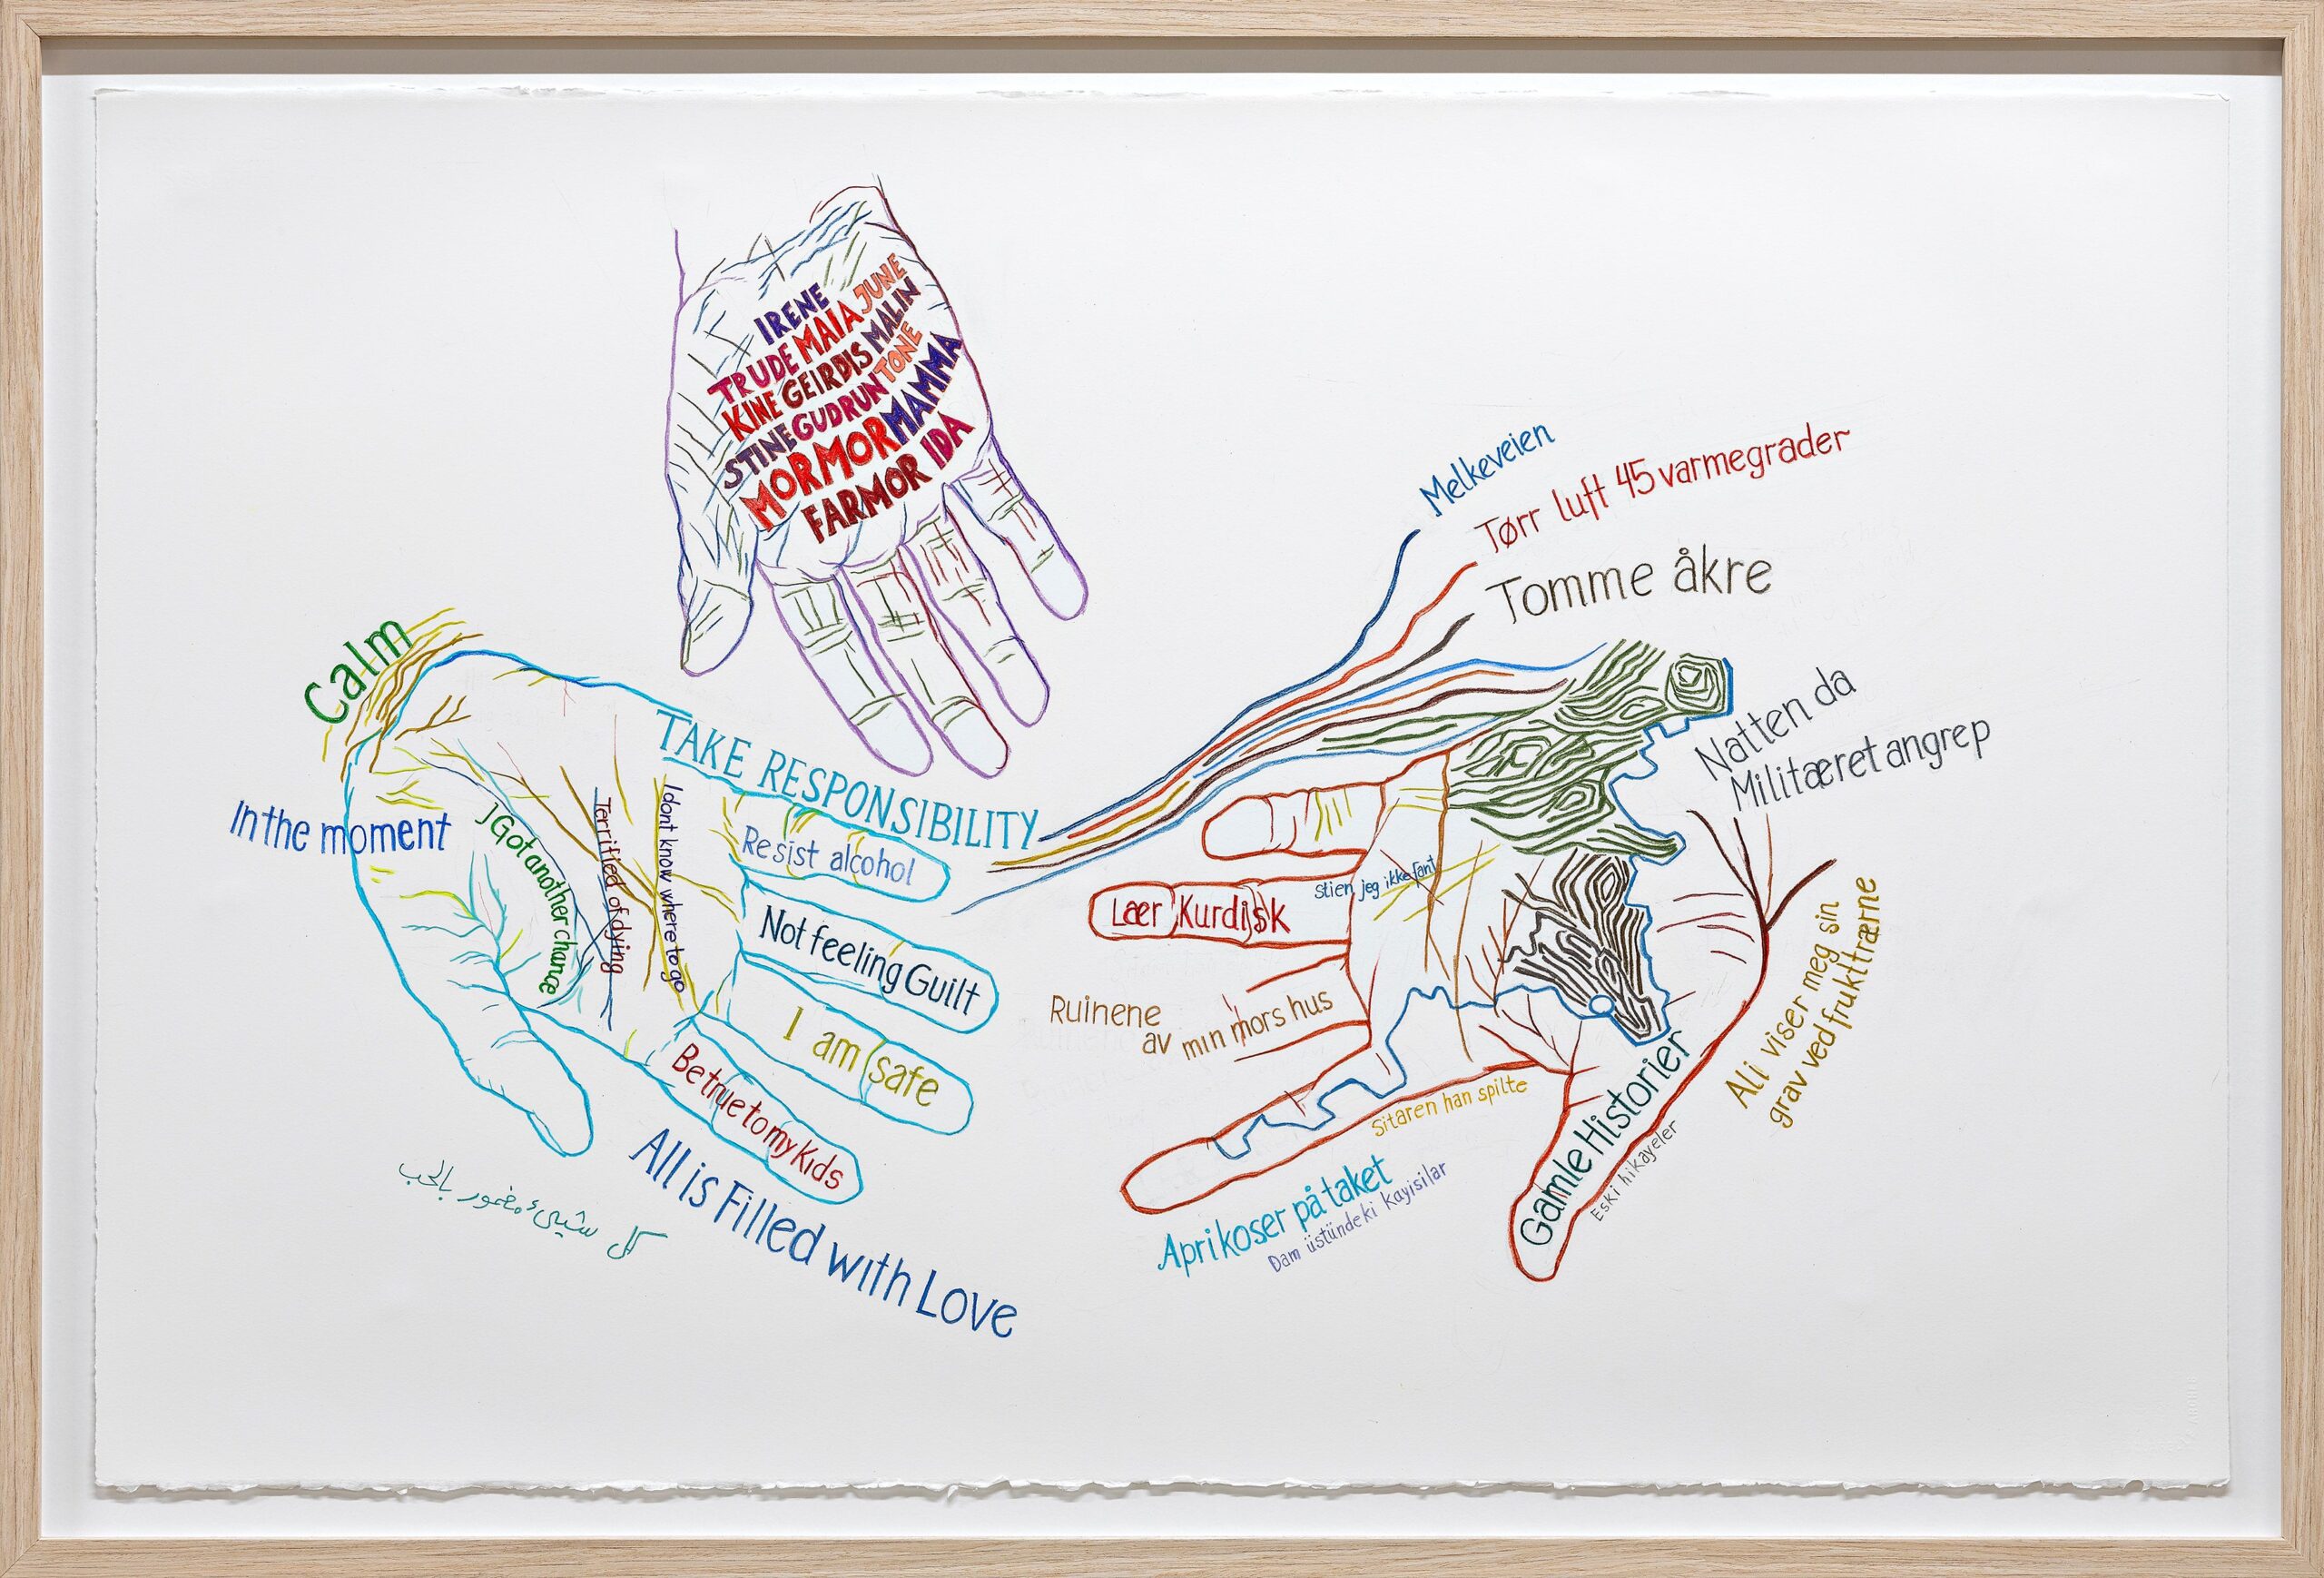 IRENE
TRUDE MAIA JUNE
KINE GEIRDIS MALIN
STINE GUDRUN TONE
MORMOR MAMMA
FARMOR IDA
Calm
In the moment
I Got another chance
Terrified of dying
I dont know where to go
TAKE RESPONSIBILITY
Resist alcohol
Not feeling Guilt
I am safe
Be true to my Kids
All is Filled with Love
كل شيئ مغمور بالحب
Melkeveien
Tørr luft 45 varmegrader
Tomme åkre
Natten da
Militæret angrep
stien jeg ikke fant
Lær Kurdisk
Ruinene
av min mors hus
Sitaren han spilte
Aprikoser på taket
Dam üstündeki kayisilar
Gamle Historier
Eski hikayeler
Ali viser meg sin
grav ved frukttrærne